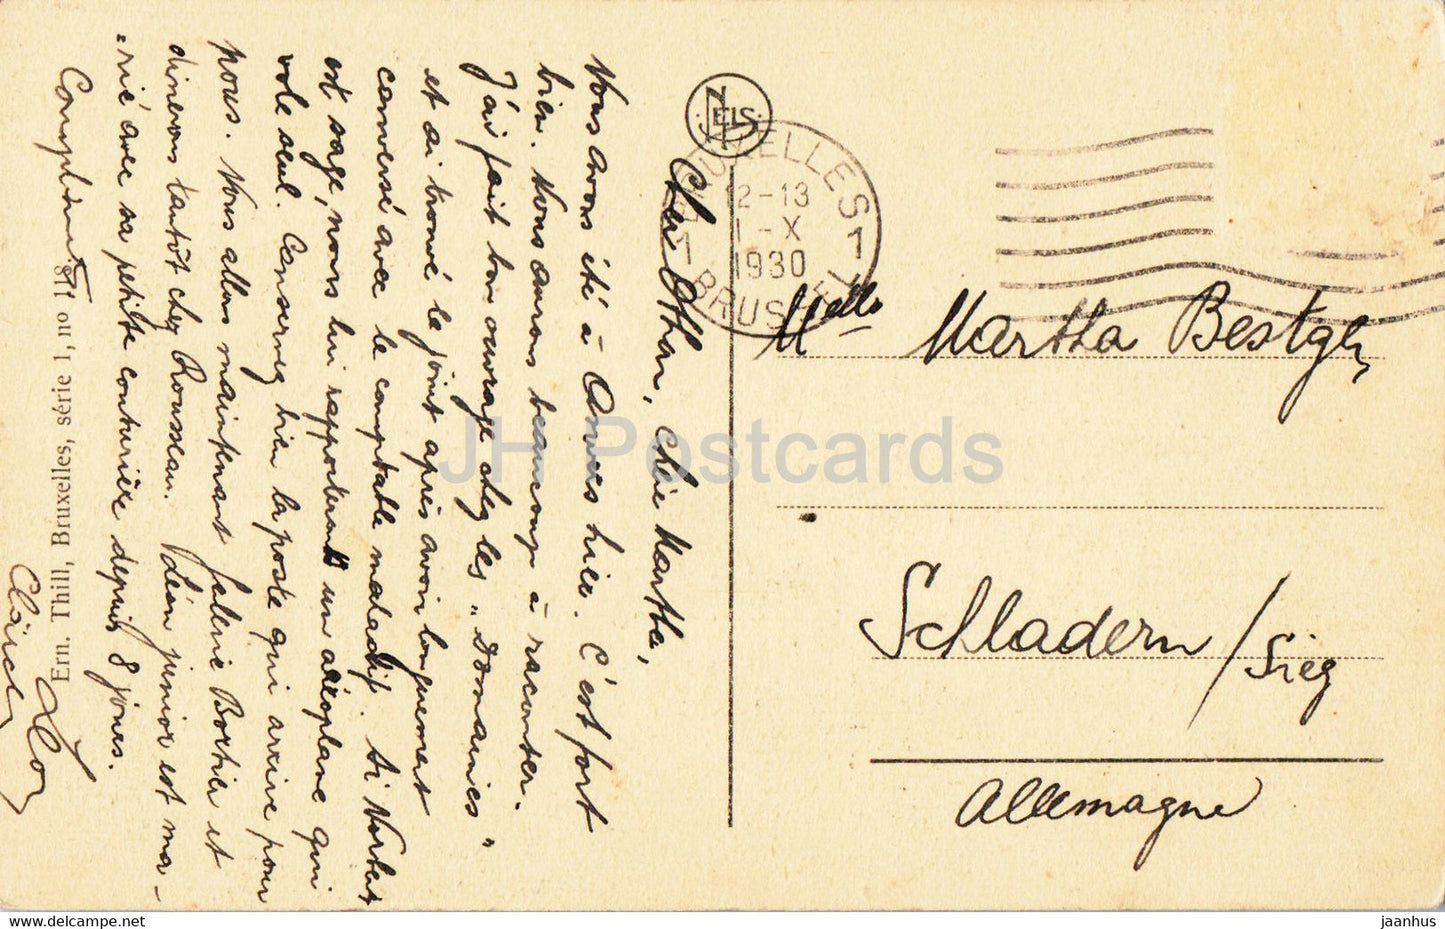 Cher Othon, chère Marthe,
Vous avons été à Anvers hier. C'est fort
bien. Nous aurons beaucoup à raconter.
J'ai fait bon ouvrage chez les „Domaines"
et ai trouvé le joint après avoir longuement
conversé avec le comptable maladif. Si Norbert
est sage, nous lui rapporterons un aéroplane qui
vole seul. Conservez bien la poste qui arrive pour
nous. Nous allons maintenant galerie Bortier et
dinerons tantôt chez Rousseau. Léon junior est ma-
rié avec sa petite couturière depuis 8 jours.
Compliments
NELS
Ern. Thill, Bruxelles, série 1, no 118
BRUXELLES 1
12-13
1-X
1930
BRUSSEL 1
Melle Martha Bestgen
Schladern/Sieg
Allemagne
JH Postcards
hipstamp-eu.myshopify.net
jaanhus